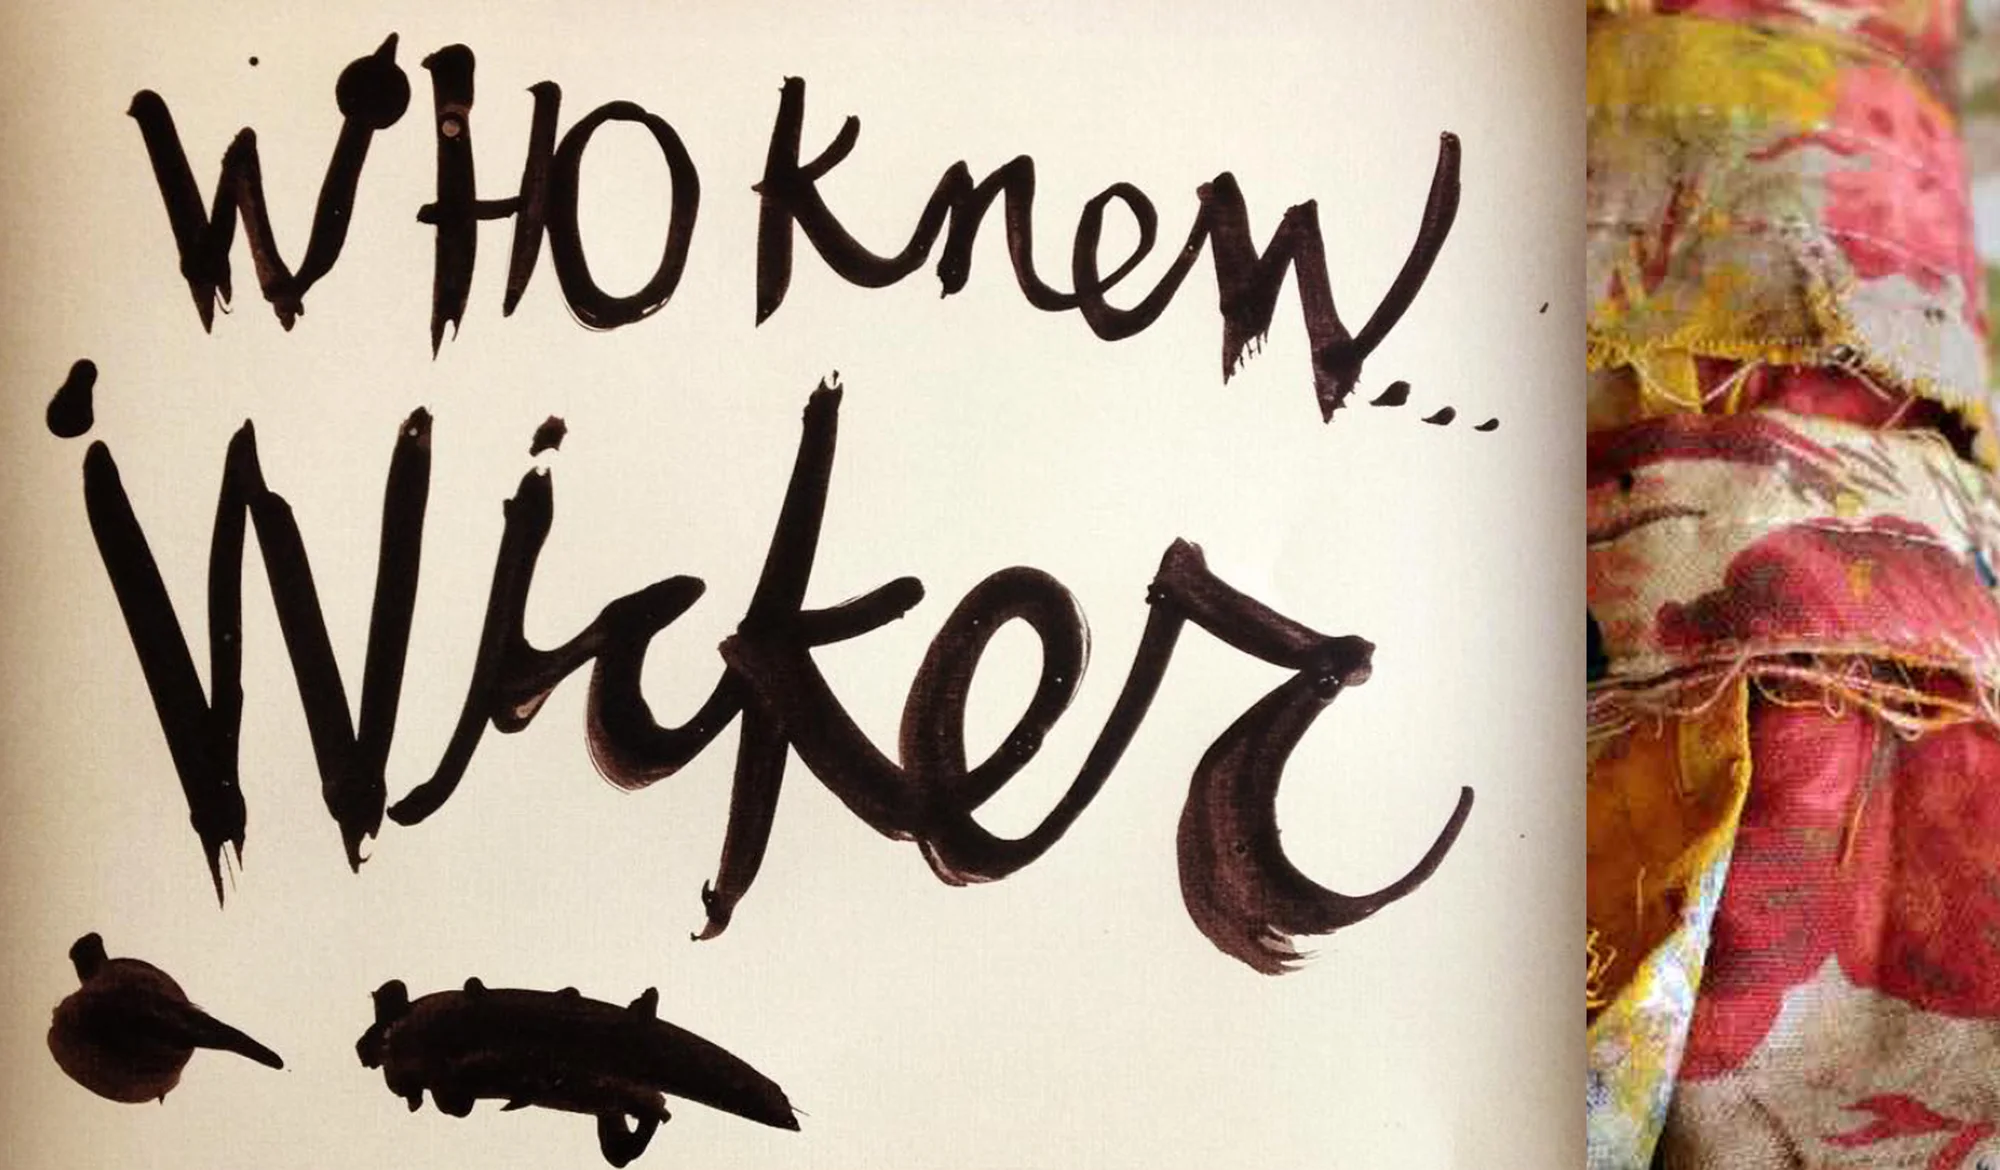 WHO knew...
Wicker